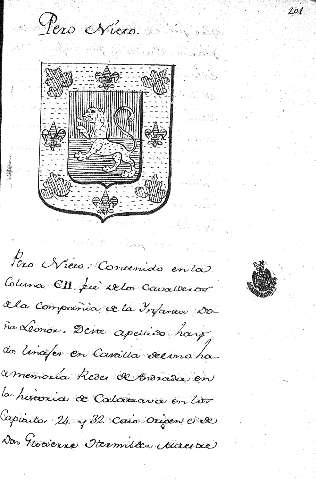 201
Pero Niero.
Pero Niero: Contenido en la
Coluna CII fue delos Cavalleros
de la Compañia de la Ynfanta Do-
ña Leonor. Deste apellido hay
dos linajes en Castilla del uno ha-
ze memoria Rades de Andrada en
la historia de Calatrava en los
Capitulos 24 y 32 cuio origen es de
Don Gutierre Maestre